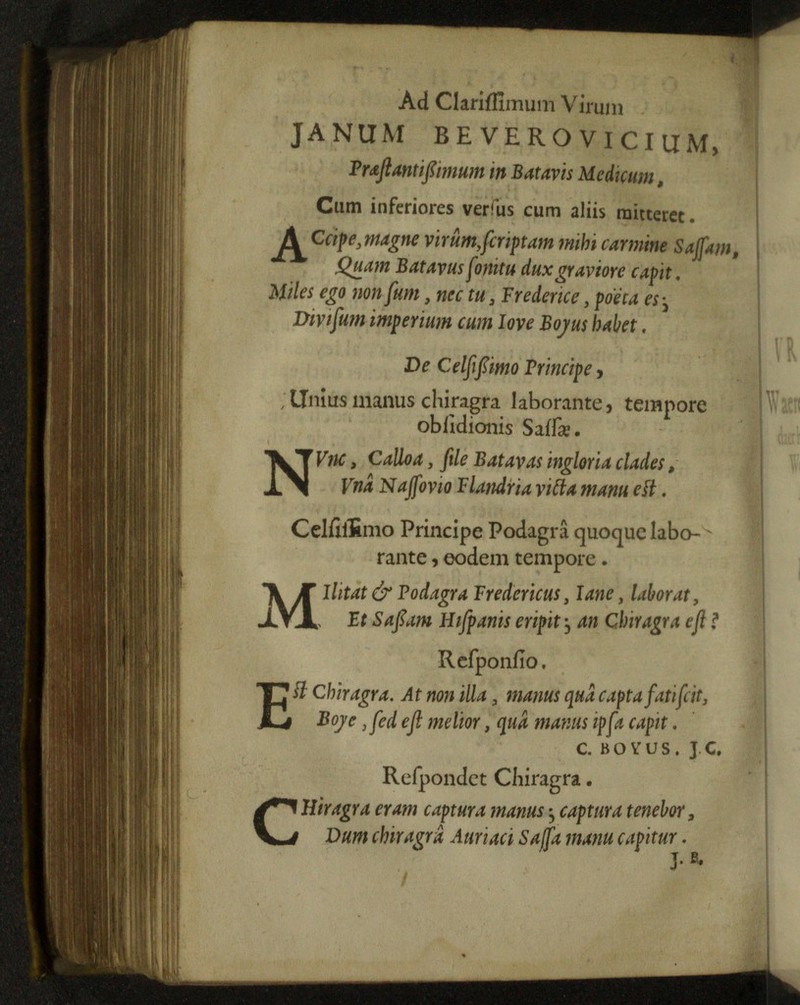 Ad Clarissimum Virum
JANUM BEVEROVICIUM,
Præstantißimum in Batavis Medicum,
Cum inferiores versus cum aliis mitteret.
ACcipe, magne virûm, scriptam mihi carmine Sassam,
Quam Batavus sonitu dux graviore capit.
Miles ego non sum, nec tu, Frederice, poëta es;
Divisum imperium cum Iove Boyus habet.
De Celsißimo Principe,
Unius manus chiragra laborante, tempore
obsidionis Sassæ.
NVnc, Calloa, sile Batavas ingloria clades,
Vnâ Nassovio Flandria victa manu est.
Celsissimo Principe Podagrâ quoque labo-
rante, eodem tempore.
MIlitat & Podagra Fredericus, Iane, laborat,
Et Saßam Hispanis eripit; an Chiragra est?
Responsio.
ESt Chiragra. At non illa, manus quâ capta fatiscit,
Boye, sed est melior, quâ manus ipsa capit.
C. BOYUS. J.C.
Respondet Chiragra.
CHiragra eram captura manus; captura tenebor,
Dum chiragrâ Auriaci Sassa manu capitur.
J. B.
VR
Waer